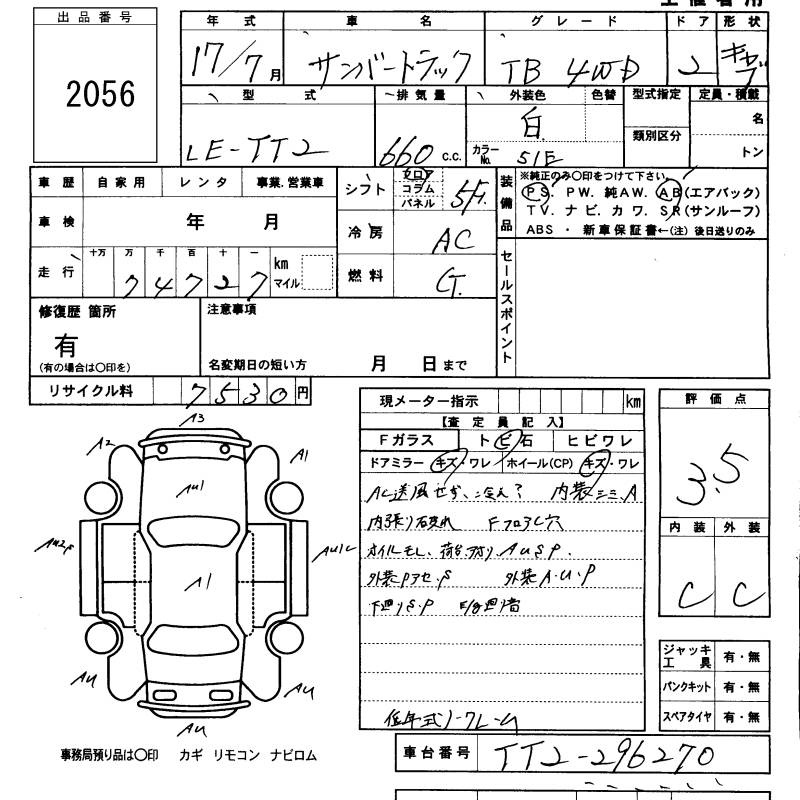 出品番号
2056
年式 車名 グレード ドア 形状
17/7月 サンバートラック TB 4WD 2 キャブ
型式 排気量 外装色 色替 型式指定 定員・積載
LE-TT2 660 c.c. 白 カラーNo. 51E 類別区分 名
トン
車歴 自家用 レンタ 事業.営業車
車検 年 月
走行 十万 万 千 百 十 一
74727 km マイル
シフト フロア コラム パネル 5F
冷房 AC
燃料 G
装備品
※純正のみ〇印をつけて下さい。
PS. PW. 純AW. AB(エアバック)
TV. ナビ. カワ. SR(サンルーフ)
ABS ・ 新車保証書←(注) 後日送りのみ
セールスポイント
修復歴 箇所
有
(有の場合は〇印を)
注意事項
名変期日の短い方 月 日まで
リサイクル料 7530円
現メーター指示 km
【査定員記入】
Fガラス トビ石 ヒビワレ
ドアミラー キズ・ワレ ホイール(CP) キズ・ワレ
AC送風せず、 内装 A
内張り破れ Fフロアし穴
オイルモレ、荷台 AUSP.
外装Pアセ.S 外装A.U.P
下廻りS.P
低年式ノークレーム
評価点
3.5
内装 外装
C C
ジャッキ工具 有・無
パンクキット 有・無
スペアタイヤ 有・無
A3
A2
A1
AU1
AU1C
A1
AU
AU
AU
事務局預り品は〇印 カギ リモコン ナビロム
車台番号 TT2-296270